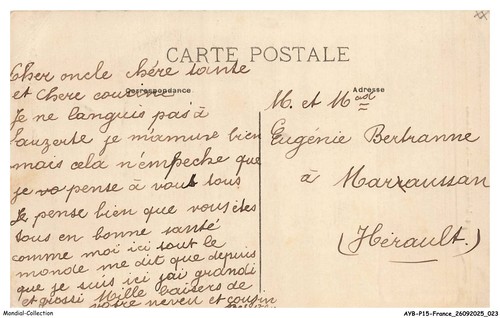 CARTE POSTALE
Correspondance
Cher oncle chère tante
et Chere cousine
Je ne languis pas à
Lauzerte je m'amuse bien
mais cela n'empeche que
je vo pense à vous tous
Je pense bien que vous êtes
tous en bonne santé
comme moi ici tout le
monde me dit que depuis
que je suis ici j'ai grandi
et grossi Mille baisers de
votre neveu et cousin
Adresse
M. et Mad
Eugénie Bertranne
à Marraussan
(Hérault.)
Mondial-Collection
AYB-P15-France_26092025_023